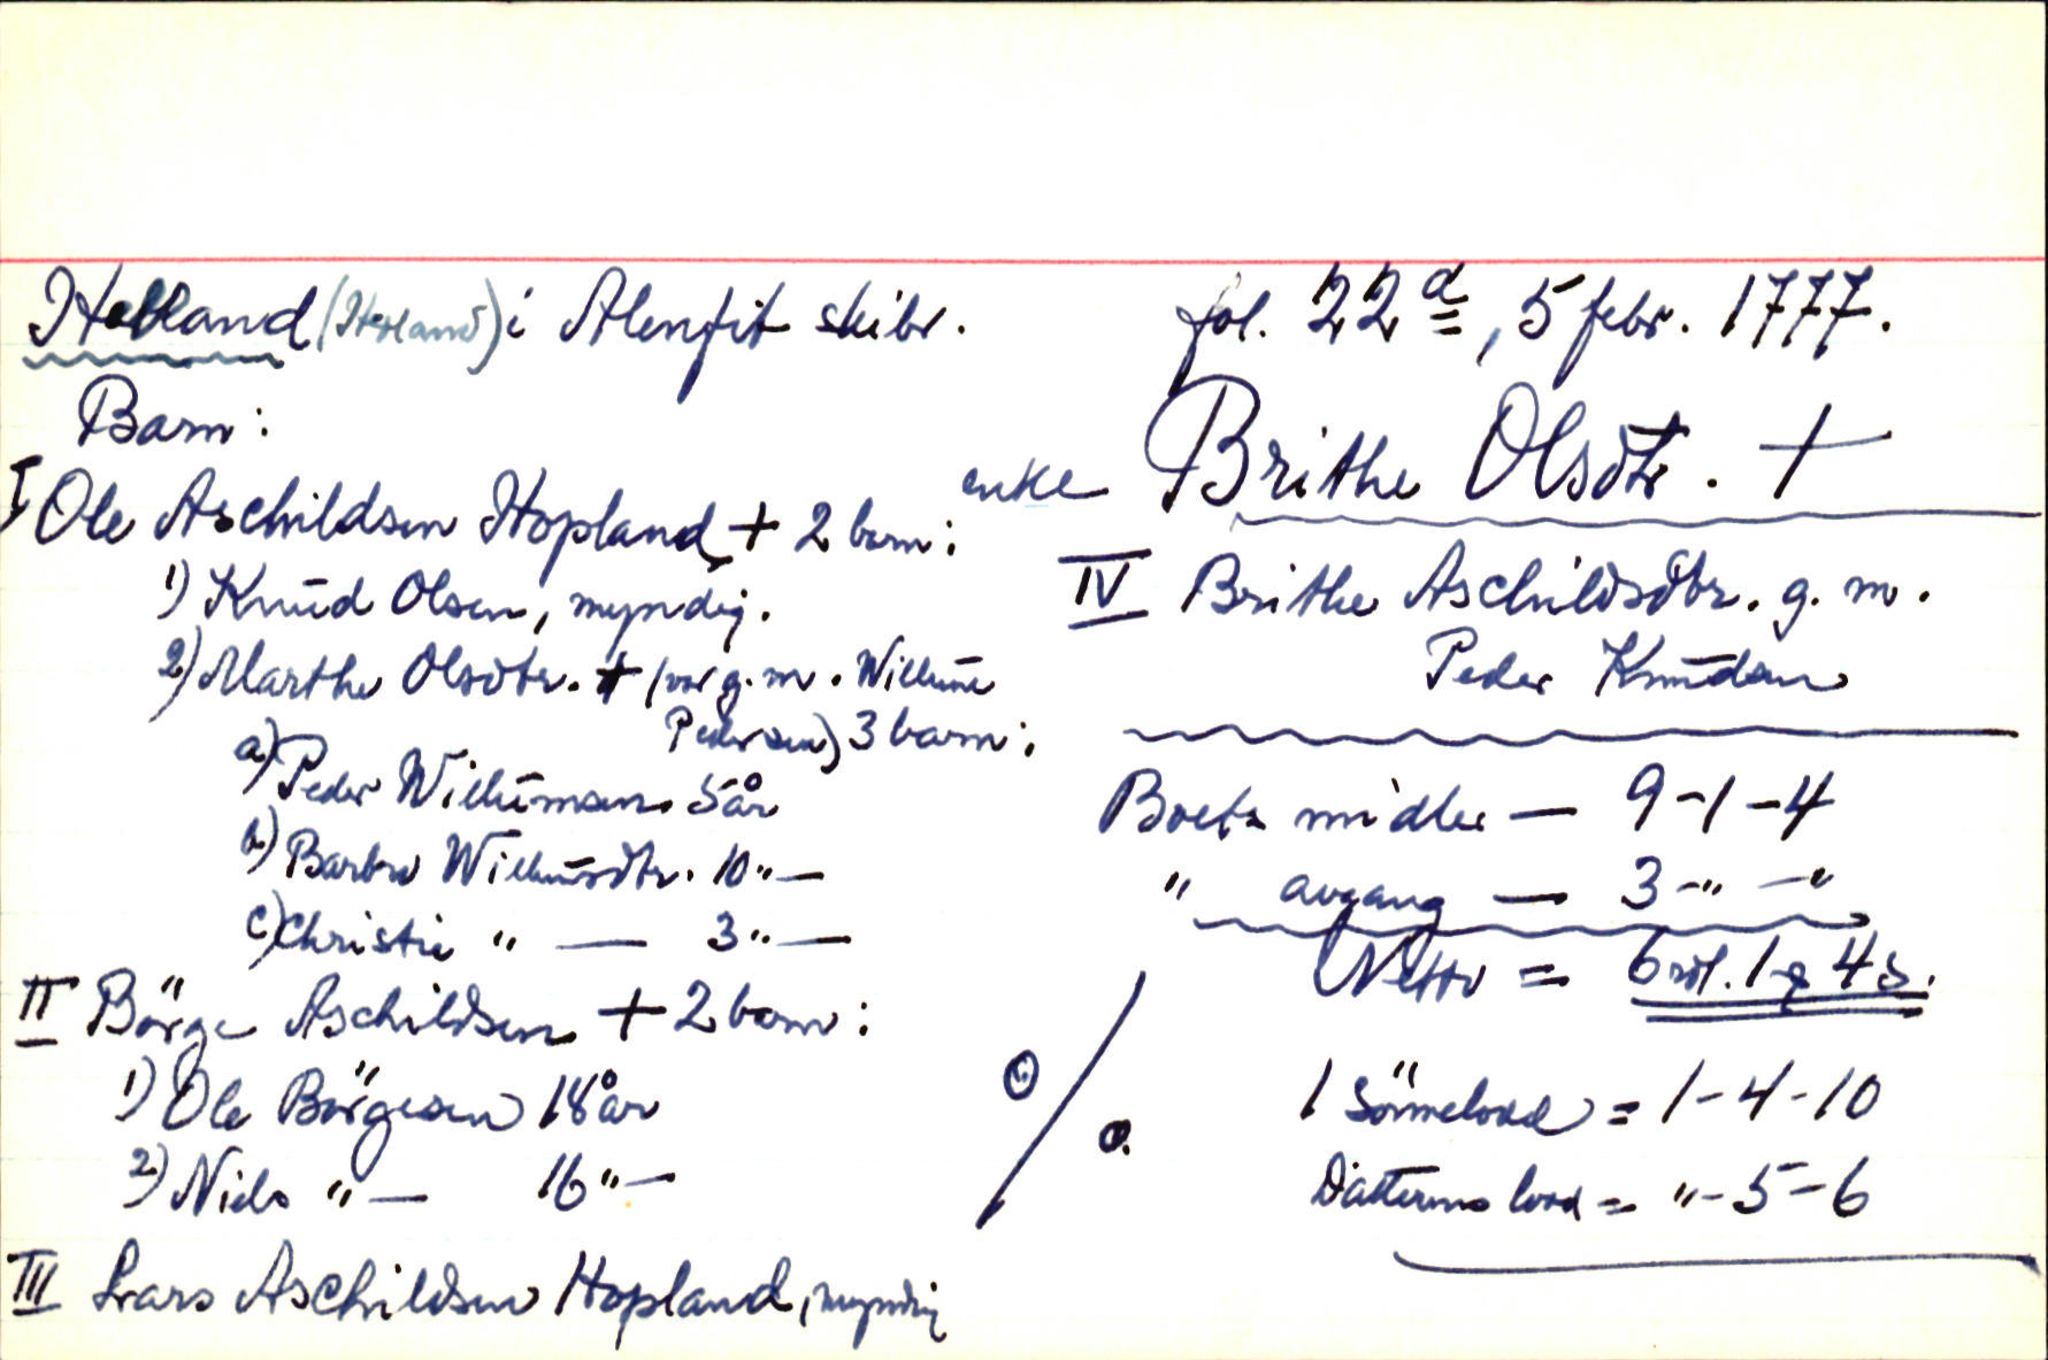 Hebland (Hetland) i Alenfit skibr.
Barn:
I Ole Aschildsen Hopland + 2 barn:
1) Knūd Olsen, myndig.
2) Marthe Olsdtr. + (var g. m. Willum
Pedersen) 3 barn:
a) Peder Willumsen 5 år
b) Barbro Willumsdtr. 10 " —
c) Christie " — 3 " —
II Börge Aschildsen + 2 barn:
1) Ole Börgesen 18 år
2) Niels " — 16 " —
III Lars Aschildsen Hopland, myndig
fol. 22a, 5 febr. 1777.
enke Brithe Olsdtr. +
IV Brithe Aschildsdtr. g. m.
Peder Knudsen
Boets midler — 9 - 1 - 4
" avgang — 3 - " - "
Netto = 6 rdl. 1 4 s.
1 Sönnelodd = 1 - 4 - 10
Datterens lodd = " - 5 - 6